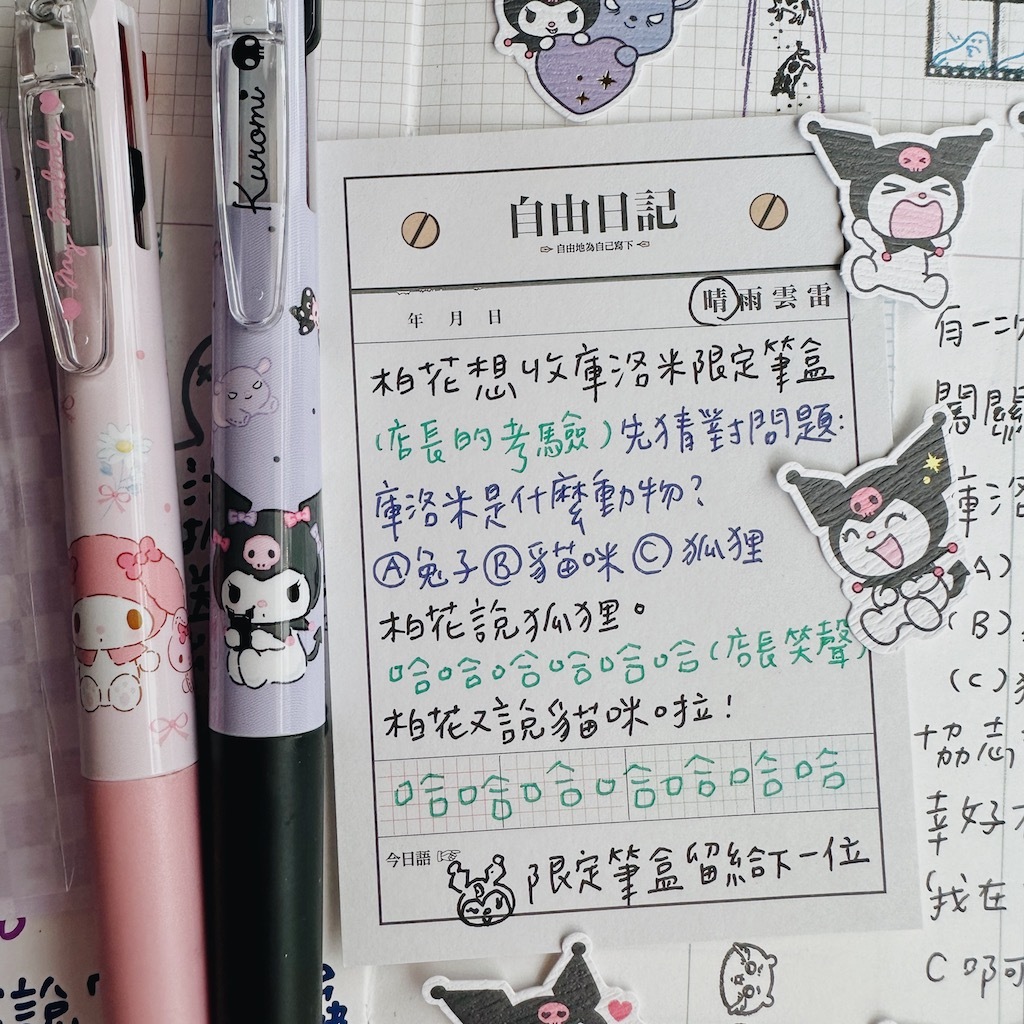 My Melody
Kuromi
自由日記
自由地為自己寫下
年 月 日 晴 雨 雲 雷
柏花想收庫洛米限定筆盒
(店長的考驗)先猜對問題:
庫洛米是什麼動物?
Ⓐ兔子Ⓑ貓咪Ⓒ狐狸
柏花說狐狸。
哈哈哈哈哈哈(店長笑聲)
柏花又說貓咪啦!
哈哈哈哈哈哈哈
今日語 限定筆盒留給下一位
有一次
闖關
庫洛
(A)
(B)
(C)
協志
幸好
(我在
C啊
說